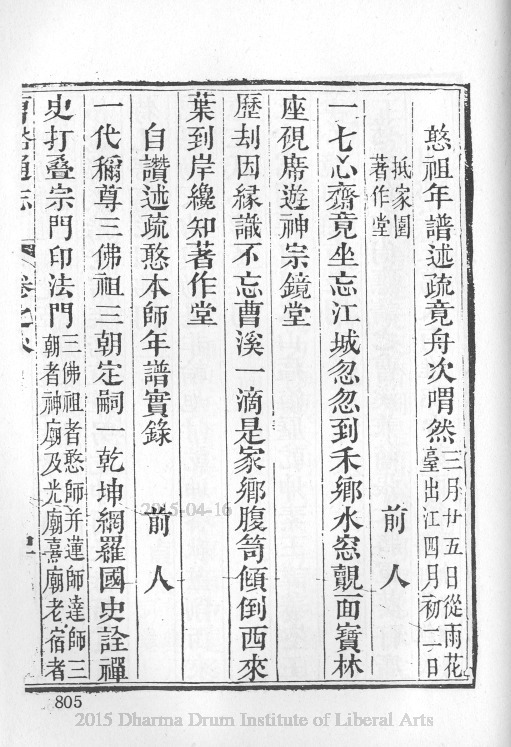 憨祖年譜述疏竟舟次喟然三月廿五日從雨花
臺出江四月初二日
抵家園
著作堂
前人
一七心齋竟坐忘江城忽忽到禾鄉水窓覿面寶林
座硯席遊神宗鏡堂
歷刧因緣識不忘曹溪一滴是家鄉腹笥傾倒西來
葉到岸纔知著作堂
自讚述疏憨本師年譜實錄 前人
一代稱尊三佛祖三朝定嗣一乾坤網羅國史詮禪
史打叠宗門印法門三佛祖者憨師并蓮師達師三
朝者神廟及光廟熹廟老宿者
通志 卷之八
805
2015-04-16
2015 Dharma Drum Institute of Liberal Arts